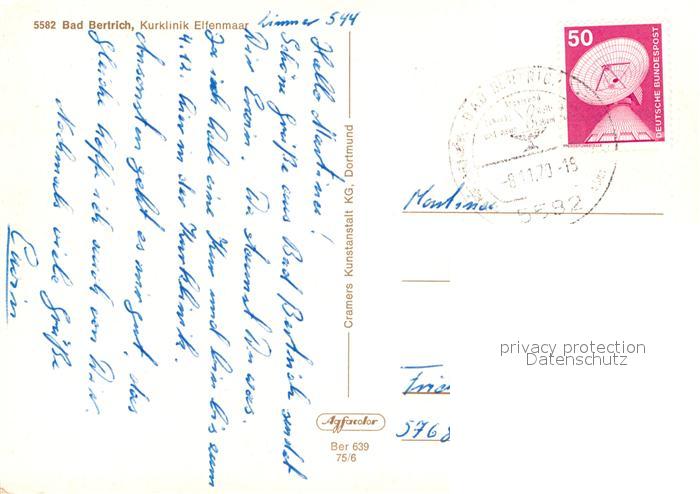 5582 Bad Bertrich, Kurklinik Elfenmaar
Zimmer 544
Hallo Martina!
Schöne Grüße aus Bad Bertrich sendet
Dir Erwin. Da staunst Du was.
Ja ich habe eine Kur und bin bis zum
4.12. hier in der Kurklinik.
Ansonsten geht es mir gut, das
Gleiche hoffe ich auch von Dir.
Nochmals viele Grüße
Erwin
Cramers Kunstanstalt KG, Dortmund
Agfacolor
Ber 639
75/6
50
DEUTSCHE BUNDESPOST
BAD BERTRICH
-8.11.79-18
5582
Martina
privacy protection
Datenschutz
576